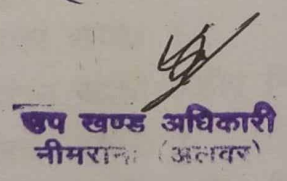 उप खण्ड अधिकारी
नीमराना (अलवर)